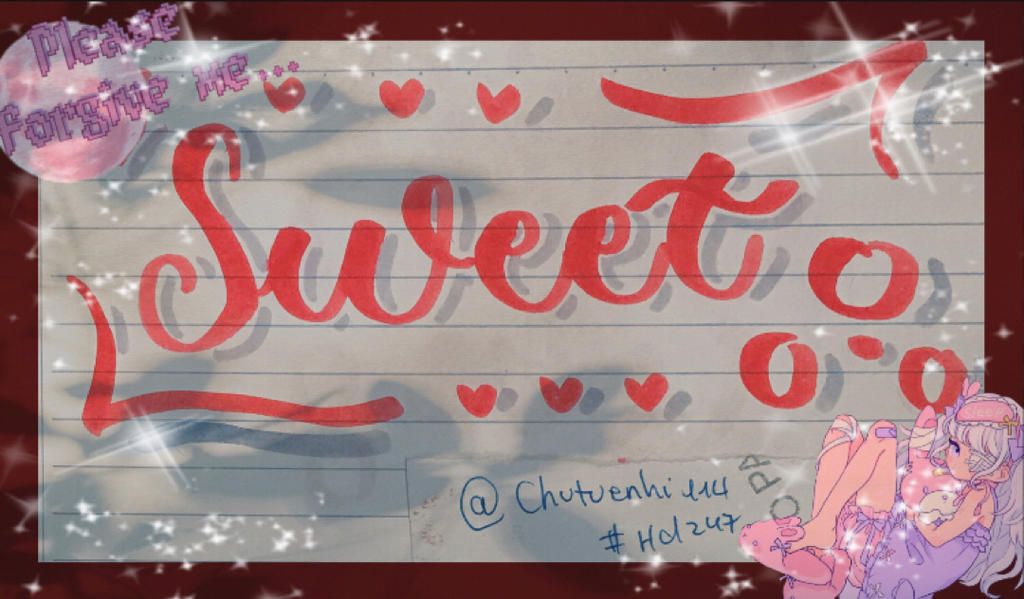 Please
forgive me...
Sweet
@Chutuenhi114
#Hd247
sleep